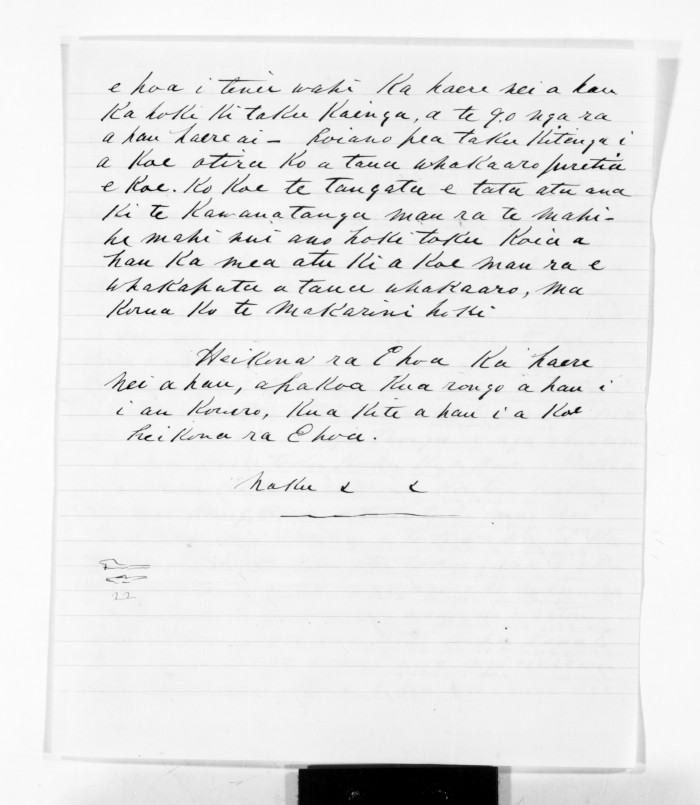 e hoa i tenei wahi Ka haere nei a hau
Ka hoki Ki taku Kainga, a te 9.0 nga ra
a hau haere ai - hoiano pea taku Kitenga i
a Koe otira Ko a taua whakaaro puretia
e Koe. Ko Koe te tangata e tata atu ana
Ki te Kawanatanga mau ra te mahi-
he mahi nui ano hoki toku Koia a
hau Ka mea atu Ki a Koe mau ra e
whakaputa a taua whakaaro, ma
Korua Ko te Makarini hoki
Heikona ra E hoa Ka haere
nei a hau, ahakoa Kua rongo a hau i
i au Korero, Kua Kite a hau i a Koe
heikona ra E hoa.
naku & &
22